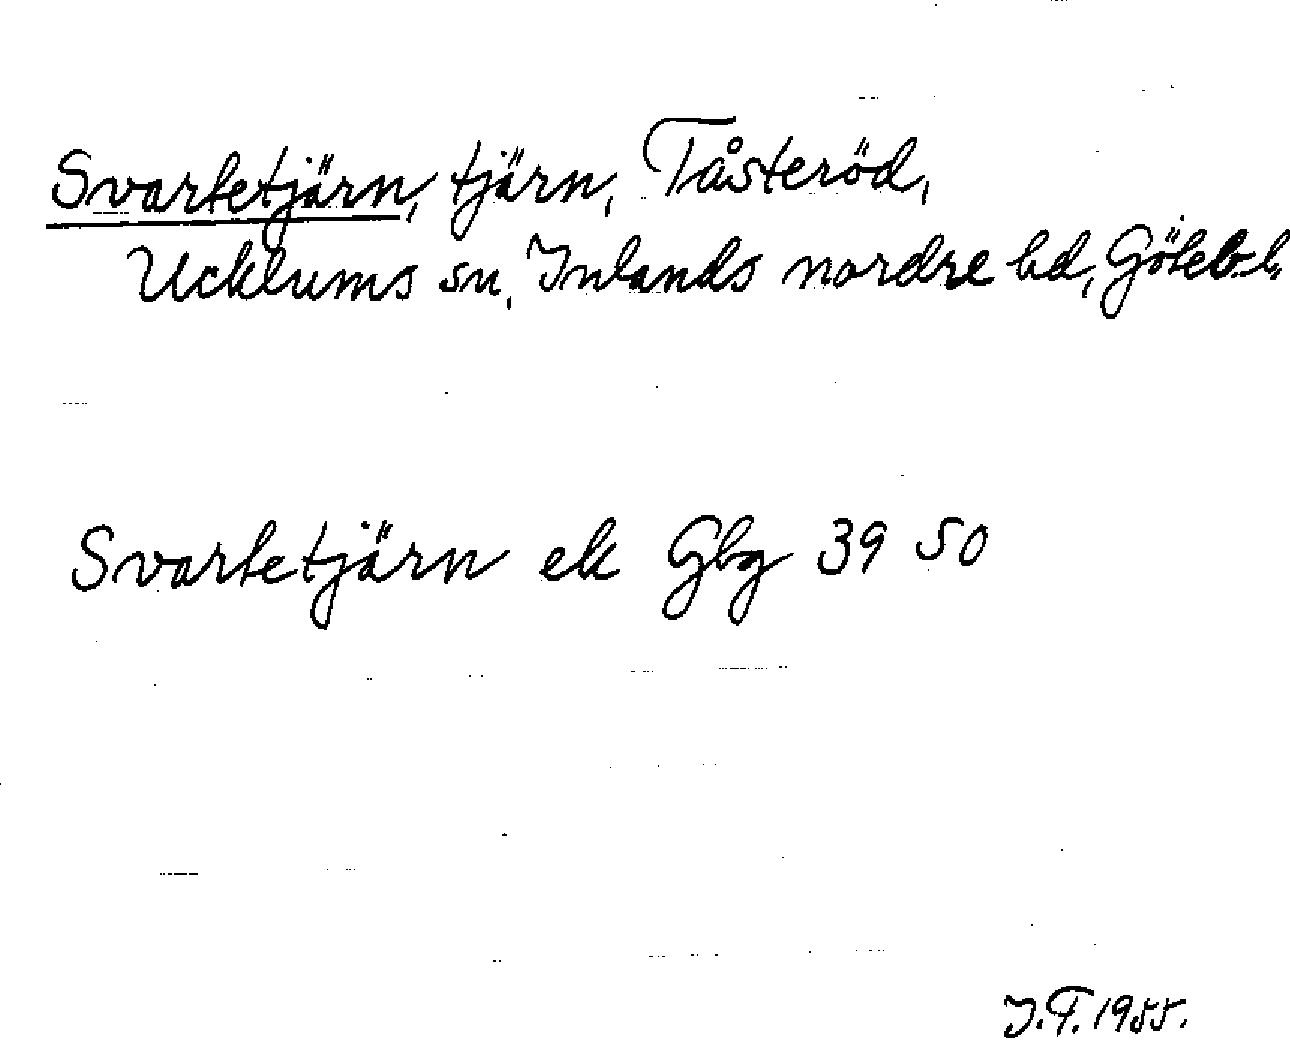 Svartetjärn, tjärn, Tåsteröd,
Ucklums sn, Inlands nordre hd, Göteb. l.
Svartetjärn ek Gbg 39 50
J.F. 1955.